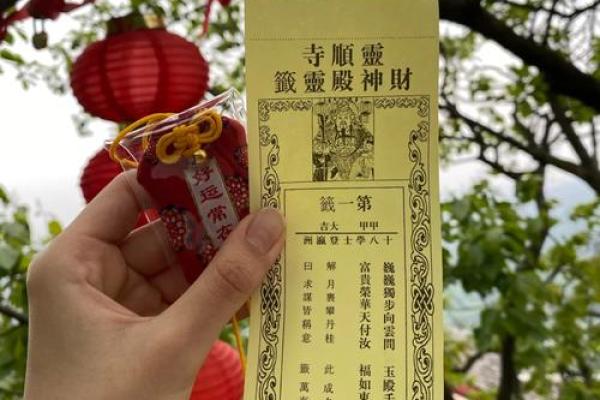 靈順寺
財神殿靈籤
第一籤
甲甲 大吉
十八學士登瀛洲
巍巍獨步向雲間 玉殿千
富貴榮華天付汝 福如東
解 月裏攀丹桂 此 成
曰 求謀皆稱意 籤 萬
好運常